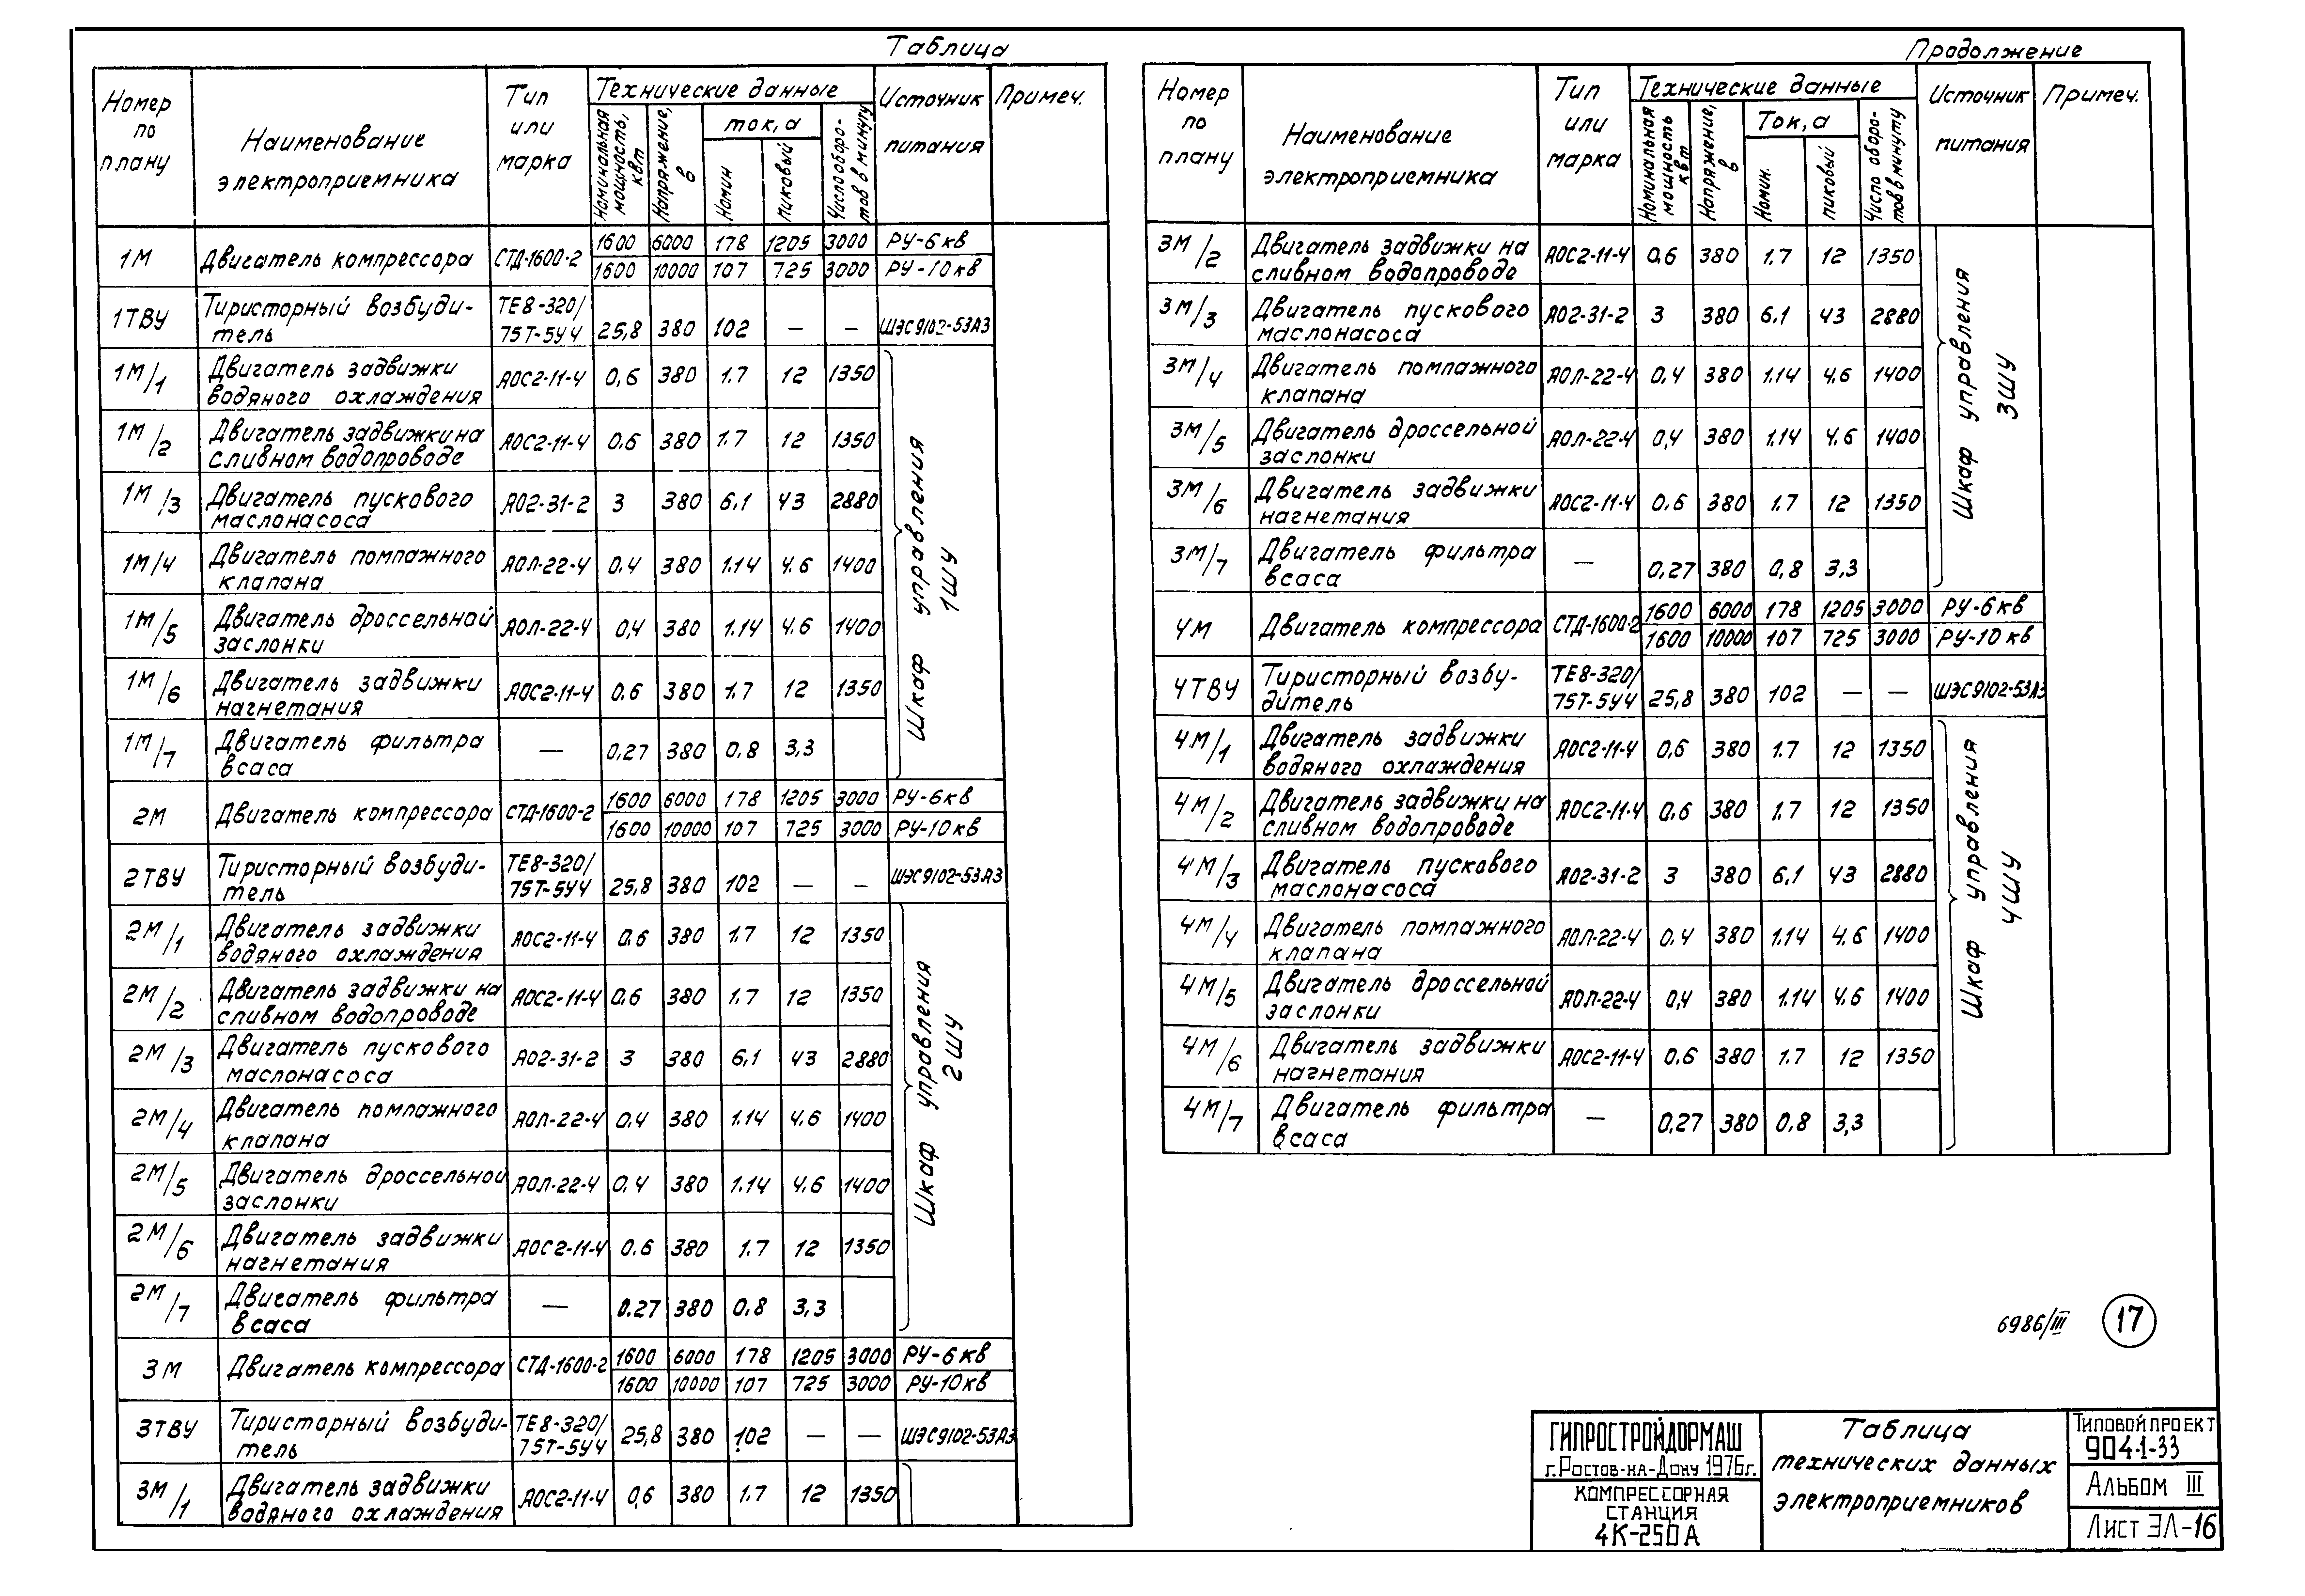 Таблица
Номер по плану | Наименование электроприемника | Тип или марка | Технические данные | Источник питания | Примеч.
Номинальная мощность, квт | Напряжение, в | ток, а | Число оборотов в минуту
Номин | пиковый
1М | Двигатель компрессора | СТД-1600-2 | 1600 | 6000 | 178 | 1205 | 3000 | РУ-6кв
1600 | 10000 | 107 | 725 | 3000 | РУ-10кв
1ТВУ | Тиристорный возбуди-
тель | ТЕ8-320/
75Т-5У4 | 25,8 | 380 | 102 | — | — | ШЭС9102-53А3
1М/1 | Двигатель задвижки
водяного охлаждения | АОС2-11-4 | 0,6 | 380 | 1.7 | 12 | 1350
1М/2 | Двигатель задвижки на
сливном водопроводе | АОС2-11-4 | 0.6 | 380 | 1.7 | 12 | 1350
1М/3 | Двигатель пускового
маслонасоса | АО2-31-2 | 3 | 380 | 6,1 | 43 | 2880
1М/4 | Двигатель помпажного
клапана | АОЛ-22-4 | 0.4 | 380 | 1.14 | 4.6 | 1400
1М/5 | Двигатель дроссельной
заслонки | АОЛ-22-4 | 0,4 | 380 | 1.14 | 4.6 | 1400
1М/6 | Двигатель задвижки
нагнетания | АОС2-11-4 | 0.6 | 380 | 1.7 | 12 | 1350
1М/7 | Двигатель фильтра
всаса | — | 0,27 | 380 | 0.8 | 3,3
Шкаф управления
1ШУ
2М | Двигатель компрессора | СТД-1600-2 | 1600 | 6000 | 178 | 1205 | 3000 | РУ-6кв
1600 | 10000 | 107 | 725 | 3000 | РУ-10кв
2ТВУ | Тиристорный возбуди-
тель | ТЕ8-320/
75Т-5У4 | 25,8 | 380 | 102 | — | — | ШЭС9102-53А3
2М/1 | Двигатель задвижки
водяного охлаждения | АОС2-11-4 | 0.6 | 380 | 1.7 | 12 | 1350
2М/2 | Двигатель задвижки на
сливном водопроводе | АОС2-11-4 | 0.6 | 380 | 1.7 | 12 | 1350
2М/3 | Двигатель пускового
маслонасоса | АО2-31-2 | 3 | 380 | 6,1 | 43 | 2880
2М/4 | Двигатель помпажного
клапана | АОЛ-22-4 | 0.4 | 380 | 1.14 | 4.6 | 1400
2М/5 | Двигатель дроссельной
заслонки | АОЛ-22-4 | 0,4 | 380 | 1.14 | 4.6 | 1400
2М/6 | Двигатель задвижки
нагнетания | АОС2-11-4 | 0.6 | 380 | 1.7 | 12 | 1350
2М/7 | Двигатель фильтра
всаса | — | 0.27 | 380 | 0,8 | 3,3
Шкаф управления
2ШУ
3М | Двигатель компрессора | СТД-1600-2 | 1600 | 6000 | 178 | 1205 | 3000 | РУ-6кв
1600 | 10000 | 107 | 725 | 3000 | РУ-10кв
3ТВУ | Тиристорный возбуди-
тель | ТЕ8-320/
75Т-5У4 | 25,8 | 380 | 102 | — | — | ШЭС9102-53А3
3М/1 | Двигатель задвижки
водяного охлаждения | АОС2-11-4 | 0,6 | 380 | 1.7 | 12 | 1350
Продолжение
Номер по плану | Наименование электроприемника | Тип или марка | Технические данные | Источник питания | Примеч.
Номинальная мощность квт | Напряжение, в | Ток, а | Число оборотов в минуту
Номин. | пиковый
3М/2 | Двигатель задвижки на
сливном водопроводе | АОС2-11-4 | 0,6 | 380 | 1.7 | 12 | 1350
3М/3 | Двигатель пускового
маслонасоса | АО2-31-2 | 3 | 380 | 6,1 | 43 | 2880
3М/4 | Двигатель помпажного
клапана | АОЛ-22-4 | 0,4 | 380 | 1.14 | 4.6 | 1400
3М/5 | Двигатель дроссельной
заслонки | АОЛ-22-4 | 0,4 | 380 | 1.14 | 4.6 | 1400
3М/6 | Двигатель задвижки
нагнетания | АОС2-11-4 | 0.6 | 380 | 1.7 | 12 | 1350
3М/7 | Двигатель фильтра
всаса | — | 0,27 | 380 | 0,8 | 3,3
Шкаф управления
3ШУ
4М | Двигатель компрессора | СТД-1600-2 | 1600 | 6000 | 178 | 1205 | 3000 | РУ-6кв
1600 | 10000 | 107 | 725 | 3000 | РУ-10кв
4ТВУ | Тиристорный возбу-
дитель | ТЕ8-320/
75Т-5У4 | 25,8 | 380 | 102 | — | — | ШЭС9102-53А3
4М/1 | Двигатель задвижки
водяного охлаждения | АОС2-11-4 | 0,6 | 380 | 1.7 | 12 | 1350
4М/2 | Двигатель задвижки на
сливном водопроводе | АОС2-11-4 | 0.6 | 380 | 1.7 | 12 | 1350
4М/3 | Двигатель пускового
маслонасоса | АО2-31-2 | 3 | 380 | 6,1 | 43 | 2880
4М/4 | Двигатель помпажного
клапана | АОЛ-22-4 | 0.4 | 380 | 1.14 | 4.6 | 1400
4М/5 | Двигатель дроссельной
заслонки | АОЛ-22-4 | 0,4 | 380 | 1.14 | 4.6 | 1400
4М/6 | Двигатель задвижки
нагнетания | АОС2-11-4 | 0.6 | 380 | 1.7 | 12 | 1350
4М/7 | Двигатель фильтра
всаса | — | 0,27 | 380 | 0,8 | 3,3
Шкаф управления
4ШУ
6986/III 17
ГИПРОСТРОЙДОРМАШ
г. Ростов-на-Дону 1976г.
Компрессорная
станция
4К-250А
Таблица
технических данных
электроприемников
Типовой проект
904-1-33
Альбом III
Лист ЭЛ-16